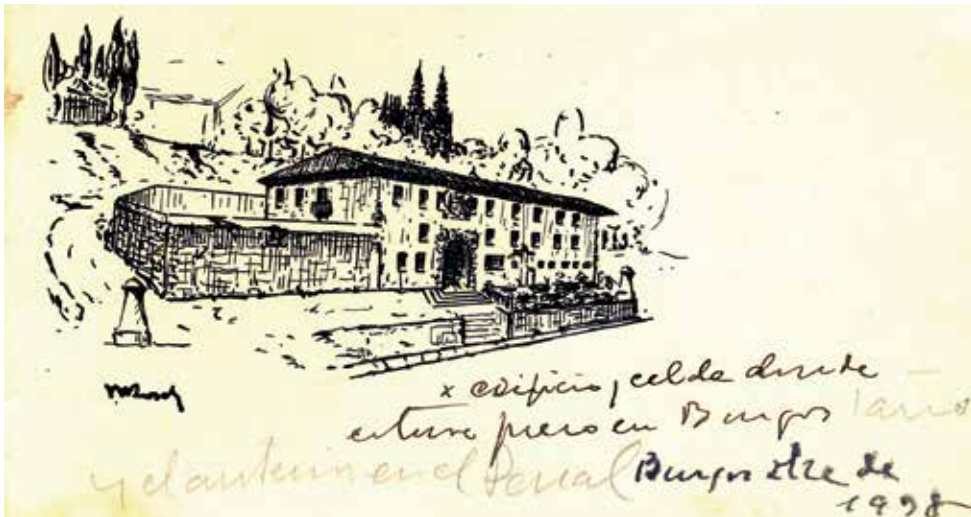 x edificio y celda donde
estuve preso en Burgos
y el anterior en el Penal Burgos
1938